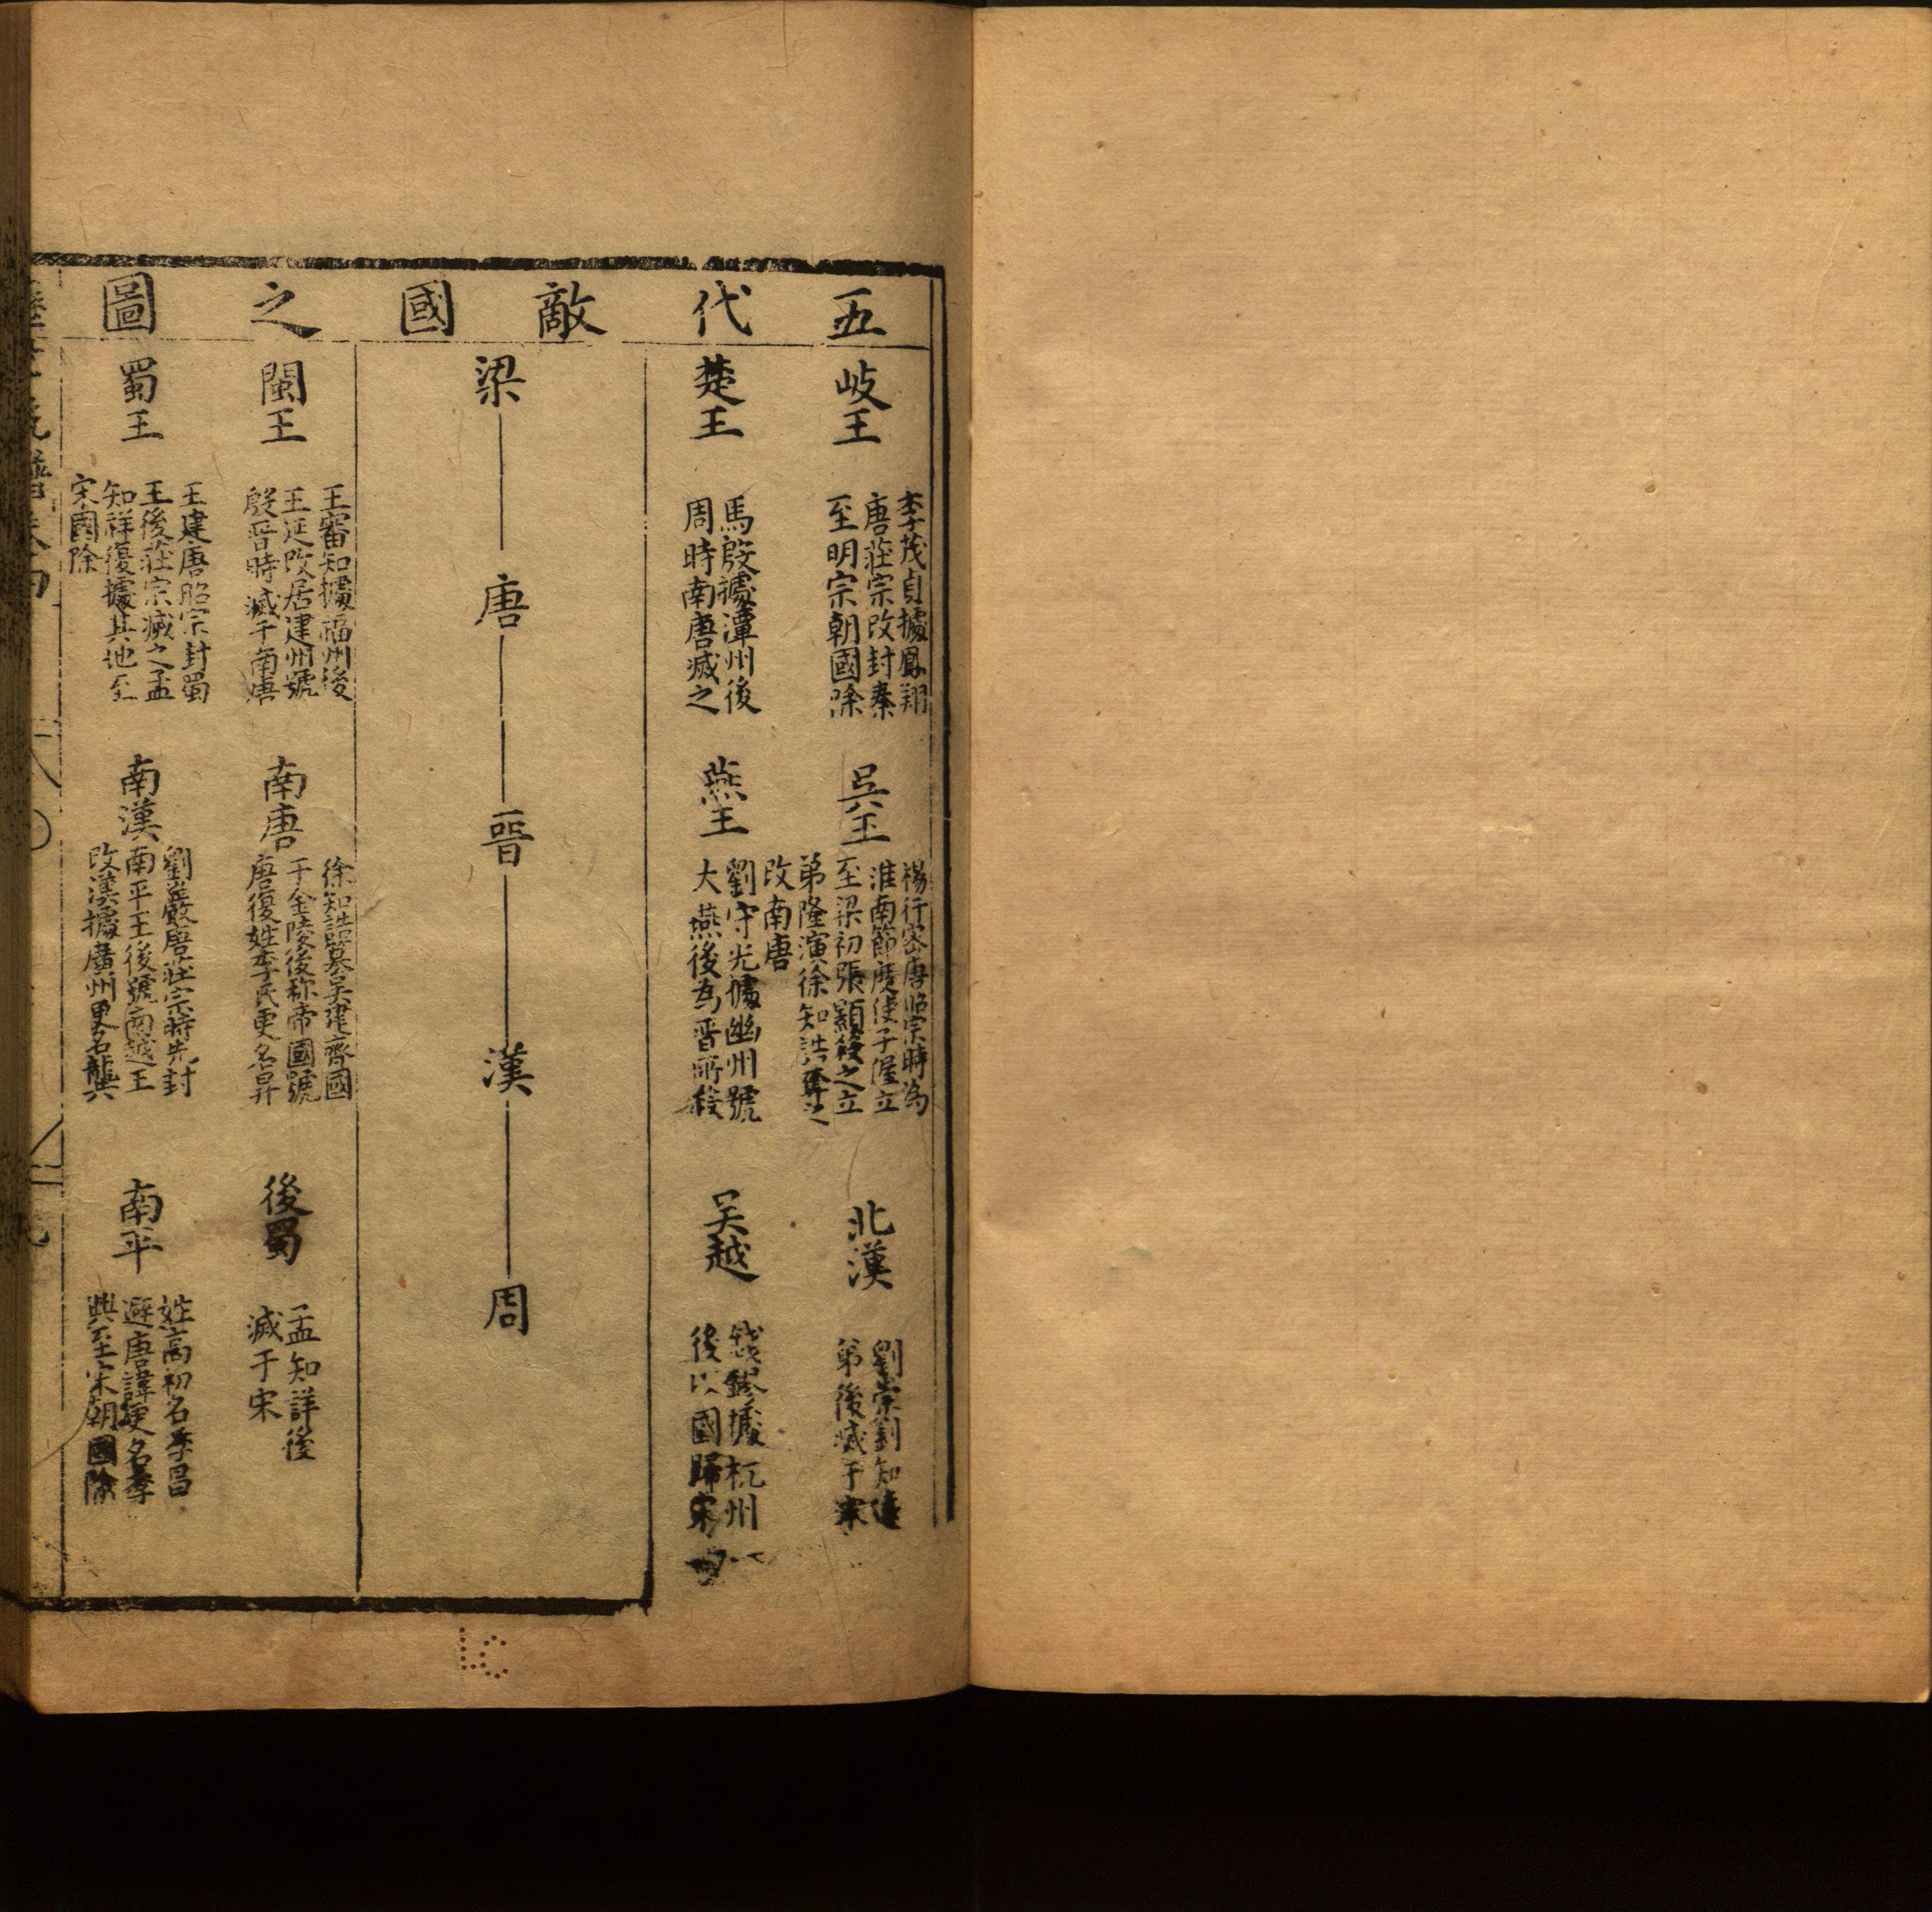 五代敵國之圖
岐王
李茂貞據鳳翔
唐莊宗改封秦
至明宗朝國除
吳王
楊行密唐昭宗時為
淮南節度使子渥立
至梁初張顥殺之立
弟隆演徐知誥奪之
改南唐
北漢
劉崇劉知遠
弟後滅于宋
楚王
馬殷據潭州後
周時南唐滅之
燕王
劉守光據幽州號
大燕後為晋所殺
吴越
錢鏐據杭州
後以國歸宋
梁
唐
晋
漢
周
閩王
王審知據福州後
王延政居建州號
殷晋時滅于南唐
南唐
徐知誥篡吴建齊國
于金陵後称帝國號
唐復姓李氏更名昇
後蜀
孟知詳後
滅于宋
蜀王
王建唐昭宗封蜀
王後莊宗滅之孟
知祥復據其地至
宋國除
南漢
劉巖唐莊宗時先封
南平王後號南越王
改漢據廣州更名龑
南平
姓高初名季昌
避唐諱更名季
興至宋朝國除